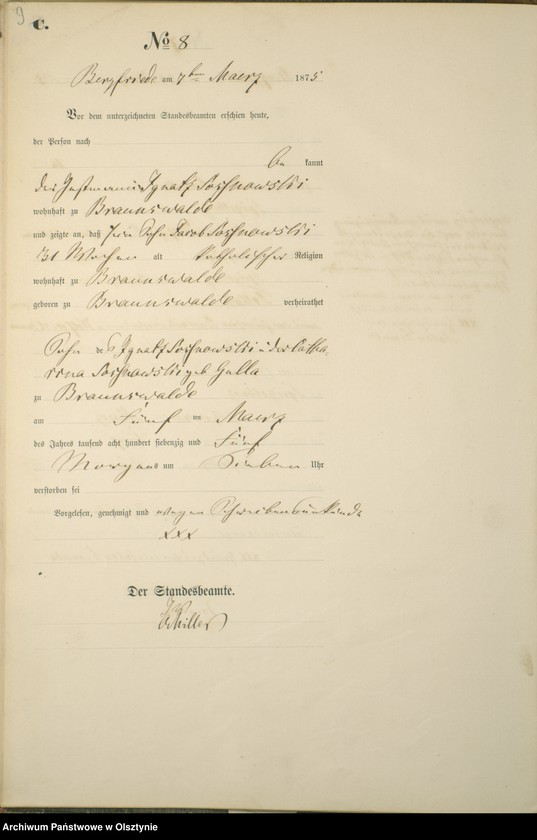 9
C.
No 8
Bergfriede am 7ten Maerz 1875
Vor dem unterzeichneten Standesbeamten erschien heute,
der Person nach
be kannt
der Instmann Ignatz
wohnhaft zu Braunswalde
und zeigte an, daß sein Sohn Jacob
31 Wochen alt katholischer Religion
wohnhaft zu Braunswalde
geboren zu Braunswalde verheirathet
Sohn des Ignatz u der Catha
rina geb Galla
zu Braunswalde
am Fünf ten Maerz
des Jahres tausend acht hundert siebenzig und Fünf
Morgens um Sieben Uhr
verstorben sei
Vorgelesen, genehmigt und wegen Schreibensunkunde
xxx
Der Standesbeamte.
Archiwum Państwowe w Olsztynie